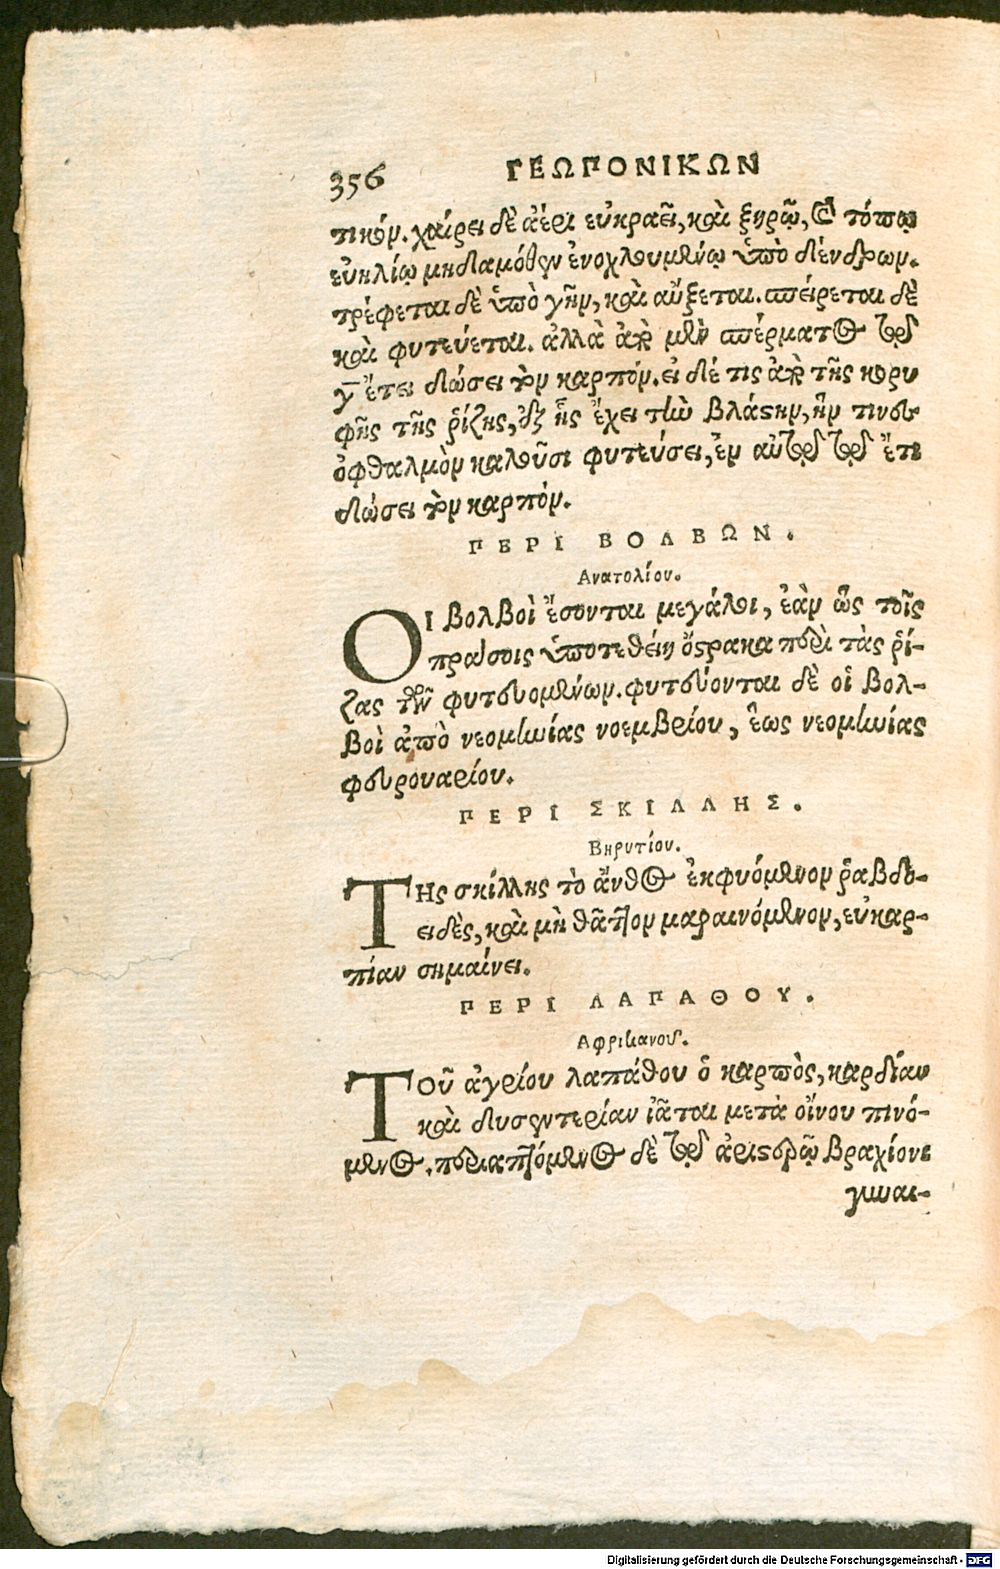 356 ΓΕΩΠΟΝΙΚΩΝ
τικόν. χαίρει δὲ ἀέρι εὐκραεῖ, καὶ ξηρῷ, καὶ τόπῳ
εὐηλίῳ μηδαμόθεν ἐνοχλουμένῳ ὑπὸ δένδρων.
τρέφεται δὲ ὑπὸ γῆν, καὶ αὔξεται. σπείρεται δὲ
καὶ φυτεύεται. ἀλλὰ ἀπὸ μὲν σπέρματος τῷ
γ ἔτει δώσει τὸν καρπόν. εἰ δέ τις ἀπὸ τῆς κορυ
φῆς τῆς ῥίζης, ἐξ ἧς ἔχει τὴν βλάστην, ἥν τινες
ὀφθαλμὸν καλοῦσι φυτεύσει, ἐν αὐτῷ τῷ ἔτει
δώσει τὸν καρπόν.
ΠΕΡΙ ΒΟΛΒΩΝ.
Ανατολίου.
ΟΙ βολβοὶ ἔσονται μεγάλοι, ἐὰν ὡς τοῖς
πράσοις ὑποτεθείη ὄστρακα περὶ τὰς ῥί-
ζας τῶν φυτευομένων. φυτεύονται δὲ οἱ βολ-
βοὶ ἀπὸ νεομηνίας νοεμβρίου, ἕως νεομηνίας
φευρουαρίου.
ΠΕΡΙ ΣΚΙΛΛΗΣ.
Βηρυτίου.
ΤΗς σκίλλης τὸ ἄνθος ἐκφυόμενον ῥαβδο-
ειδὲς, καὶ μὴ θᾶττον μαραινόμενον, εὐκαρ-
πίαν σημαίνει.
ΠΕΡΙ ΛΑΠΑΘΟΥ.
Αφρικανοῦ.
ΤΟῦ ἀγρίου λαπάθου ὁ καρπὸς, καρδίαν
καὶ δυσεντερίαν ἰᾶται μετὰ οἴνου πινό-
μενος. περιαπτόμενος δὲ τῷ ἀριστερῷ βραχίονι
γυναι-
Digitalisierung gefördert durch die Deutsche Forschungsgemeinschaft - DFG